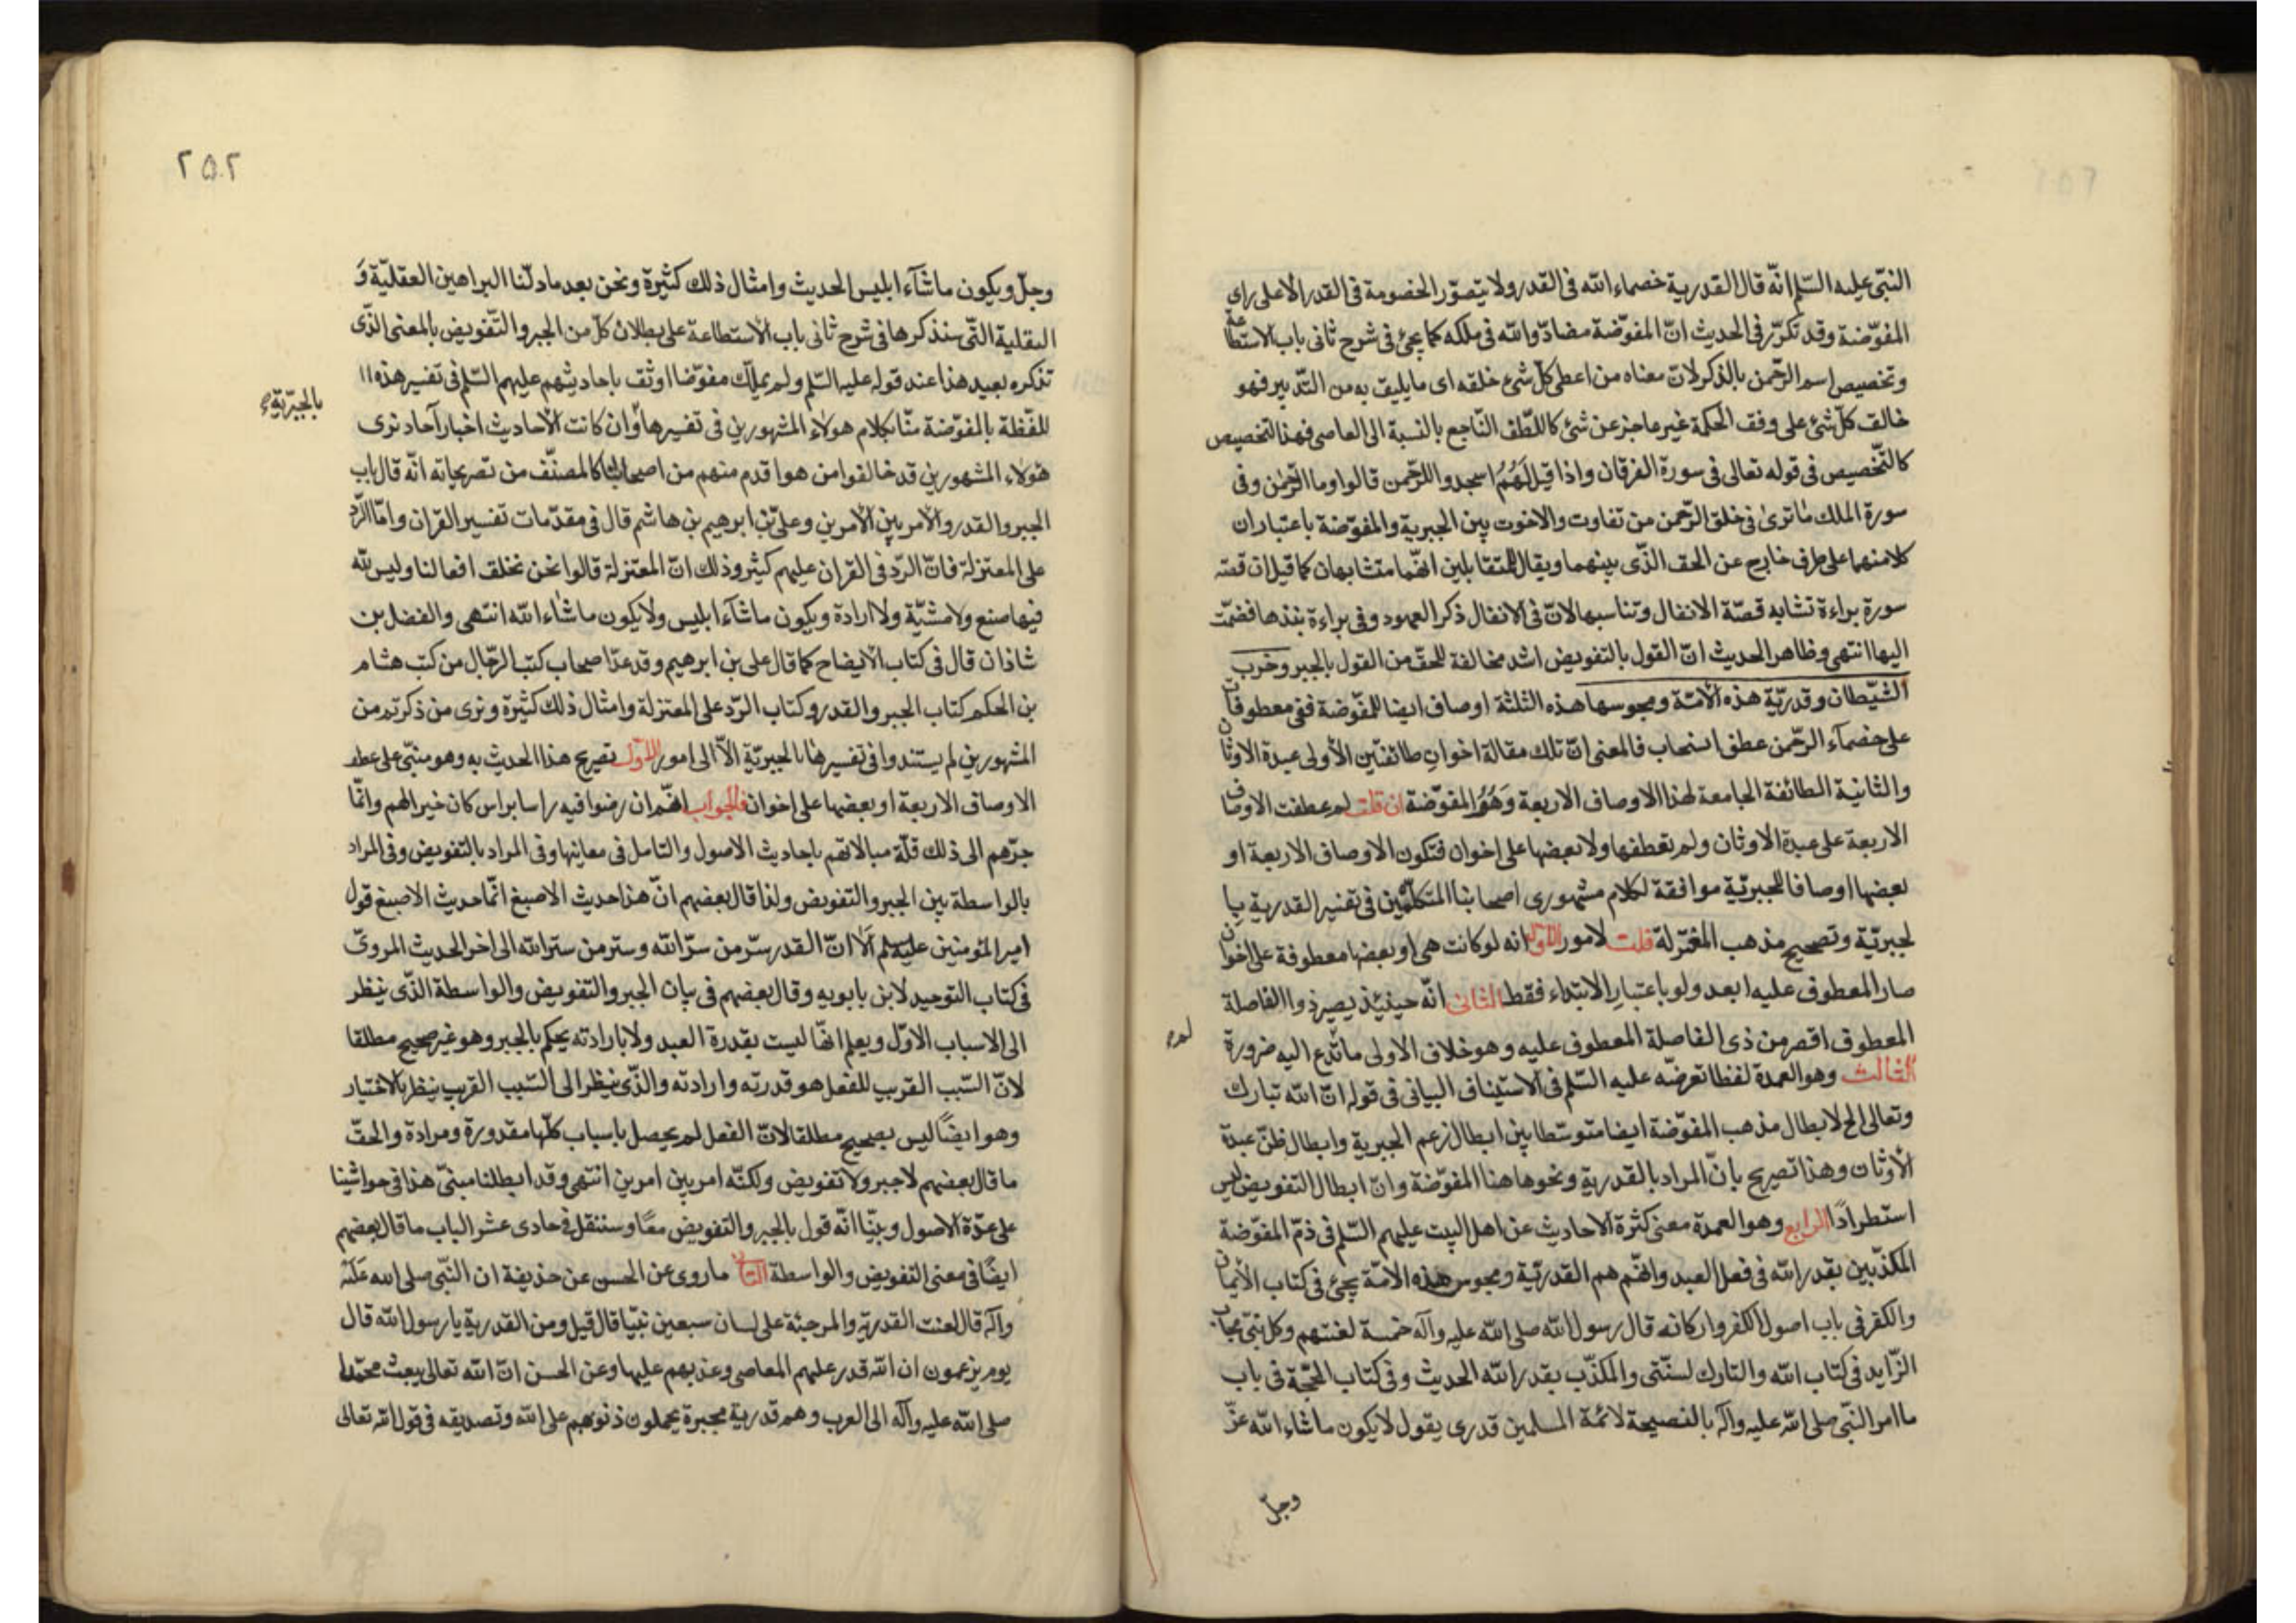 النبّى عليه السّلم انّه قال القدرية خصماء الله فى القدر ولا يتصوّر الخصومة فى القدر الا على راى
المفوّضة وقد تكرّر فى الحديث انّ المفوّضة مضادّوا الله فى ملكه كما يجئ فى شرح ثانى باب الاستطاعة
وتخصيص اسم الرّحمن بالذكر لانّ معناه من اعطى كلّ شئ خلقه اى ما يليق به من التّدبير فهو
خالق كلّ شئ على وفق الحكمة غير عاجز عن شئ كاللّطف النّاجع بالنسبة الى العاصى فهذا التخصيص
كالتّخصيص فى قوله تعالى فى سورة الفرقان واذا قيل لَهُمُ اسجدوا للرّحمن قالوا وما الرّحمن وفى
سورة الملك ما ترىٰ فى خلق الرّحمن من تفاوت والاخوت بين الجبرية والمفوّضة باعتبار ان
كلا منهما على طرف خارج عن الحق الذّى بينهما ويقال للمتقابلين انهّما متشابهان كما قيل ان قصّة
سورة براءة تشابه قصّة الانفال وتناسبها لانّ فى الانفال ذكر العهود وفى براءة نبذها فضمّت
اليها انتهى وظاهر الحديث انّ القول بالتفويض اشد مخالفة للحقّ من القول بالجبر وحزب
الشيّطان وقدريّة هذه الأمّة ومجوسها هذه الثلثة اوصاف ايضا للمفّوضة فهى معطوفات
على خصمآء الرّحمن عطف انسحاب فالمعنى انّ تلك مقالة اخوان طائفتين الأولى عبدة الاوثان
والثانية الطائفة الجامعة لهذا الاوصاف الاربعة وَهُوُ المفوّضة ان قلت لم عطفت الاوصاف
الاربعة على عبدة الاوثان ولم تعطفها ولا بعضها على اخوان فتكون الاوصاف الاربعة او
بعضها اوصافا للجبريّة موافقة لكلام مشهورى اصحابنا المتكلّمين فى تفسير القدرية با
لجبريّة وتصحيح مذهب المعتزلة قلت لامور الاوّل انه لو كانت هى او بعضها معطوفة على اخوان
صار المعطوف عليه ابعد ولو باعتبار الابتداء فقط الثانى انّه حينئذ يصير ذوا الفاصلة
المعطوف اقصر من ذى الفاصلة المعطوف عليه وهو خلاف الاولى ما لم تدع اليه ضرورة
الثالث وهو العمدة لفظا تعرضّه عليه السّلم فى الاستيناف البيانى فى قوله انّ الله تبارك
وتعالى الخ لابطال مذهب المفوّضة ايضا متوسّطا بين ابطال زعم الجبرية وابطال ظنّ عبدة
الأوثان وهذا تصريح بانّ المراد بالقدرية ونحوها هنا المفوّضة وانّ ابطال التفويض ليس
استطرادًا الرابع وهو العمدة معنى كثرة الاحاديث عن اهل البيت عليهم السّلم فى ذمّ المفوّضة
المكذّبين بقدر الله فى فعل العبد وانهّم هم القدريّة ومجوس هذه الامّة يجئ فى كتاب الأيمان
والكفر فى باب اصول الكفر واركانه قال رسول الله صلى الله عليه وآله خمسة لعنتهم وكل نبىّ مجاب
الزّايد فى كتاب الله والتارك لسنّتى والمكذّب بقدر الله الحديث وفى كتاب الحجّة فى باب
ما امر النّبى صلى الله عليه وآله بالنصيحة لائمّة المسلمين قدرى يقول لا يكون ما شاء الله عزّ
وجلّ
٢٥٢
وجلّ ويكون ما شآء ابليس الحديث وامثال ذلك كثيرة ونحن بعد ما دلّنا البراهين العقليّة وَ
النقلية التّى سنذكرها فى شرح ثانى باب الاستطاعة على بطلان كلّ من الجبر والتّفويض بالمعنى الذّى
تذكره بعيد هذا عند قوله عليه السّلم ولم يملّك مفوّضا اوثق باحاديثهم عليهم السّلم فى تفسير هذه ا
للفّظة بالمفوّضة منّا بكلام هؤلاء المشهورين فى تفسيرها وان كانت الأحاديث اخبار آحاد نرى
بالجبريّة
هؤلاء المشهورين قد خالفوا من هو اقدم منهم من اصحابنا كالمصنّف من تصريحاته انّه قال باب
الجبر والقدر والأمر بين الأمرين وعلىّ بن ابرهيم بن هاشم قال فى مقدّمات تفسير القران وامّا الرّد
على المعتزلة فانّ الرّد فى القران عليهم كثير وذلك انّ المعتزلة قالوا نحن نخلق افعالنا وليس لله
فيها صنع ولا مشيّة ولا ارادة ويكون ما شآء ابليس ولا يكون ما شاء الله انتهى والفضل بن
شاذان قال فى كتاب الايضاح كما قال على بن ابرهيم وقد عدّ اصحاب كتب الرّجال من كتب هشام
بن الحكم كتاب الجبر والقدر وكتاب الرّد على المعتزلة وامثال ذلك كثيرة ونرى من ذكرتم من
المشهورين لم يستندوا فى تفسيرها بالجبريّة الاّ الى امور الاوّل تصريح هذا الحديث به وهو مبنّى على عطف
الاوصاف الاربعة او بعضها على اخوان فالجواب انهّم ان رضوا فيه راسا براس كان خيرا لهم وانمّا
جرّهم الى ذلك قلّة مبالاتهم باحاديث الاصول والتامل فى معاينها وفى المراد بالتفويض وفى المراد
بالواسطة بين الجبر والتفويض ولذا قال بعضهم انّ هذا حديث الاصبغ انمّا حديث الاصبغ قول
امير المؤمنين عليه سلم ألا انّ القدر سرّ من سرّ الله وستر من ستر الله الى اخر الحديث المروىّ
فى كتاب التوحيد لابن بابويه وقال بعضهم فى بيان الجبر والتفويض والواسطة الذّى ينظر
الى الاسباب الاوّل ويعلم انهّا ليست بقدرة العبد ولا بارادته يحكم بالجبر وهو غير صحيح مطلقا
لانّ السّبب القريب للفعل هو قدرته وارادته والذّى ينظر الى السّبب القريب ينظر بالاختيار
وهو ايضًا ليس بصحيح مطلقا لانّ الفعل لم يحصل باسباب كلّها مقدورة ومرادة والحقّ
ما قال بعضهم لا جبر ولا تفويض ولكنّه امر بين امرين انتهى وقد ابطلنا مبنىّ هذا فى حواشينا
على عدّة الاصول وبيّنا انّه قول بالجبر والتفويض معًا وسننقل فى حادى عشر الباب ما قال بعضهم
ايضًا فى معنى التفويض والواسطة الثانى ما روى عن الحسن عن حذيفة ان النّبى صلى الله عليه
وآله قال لعنت القدريّة والمرجئة على لسان سبعين نبيّا قال قيل ومن القدرية يا رسول الله قال
يوم يزعمون ان الله قدر عليهم المعاصى وعذبهم عليها وعن الحسن انّ الله تعالى بعث محمّدا
صلى الله عليه وآله الى العرب وهم قدرية مجبرة يحملون ذنوبهم على الله وتصديقه فى قول الله تعالى